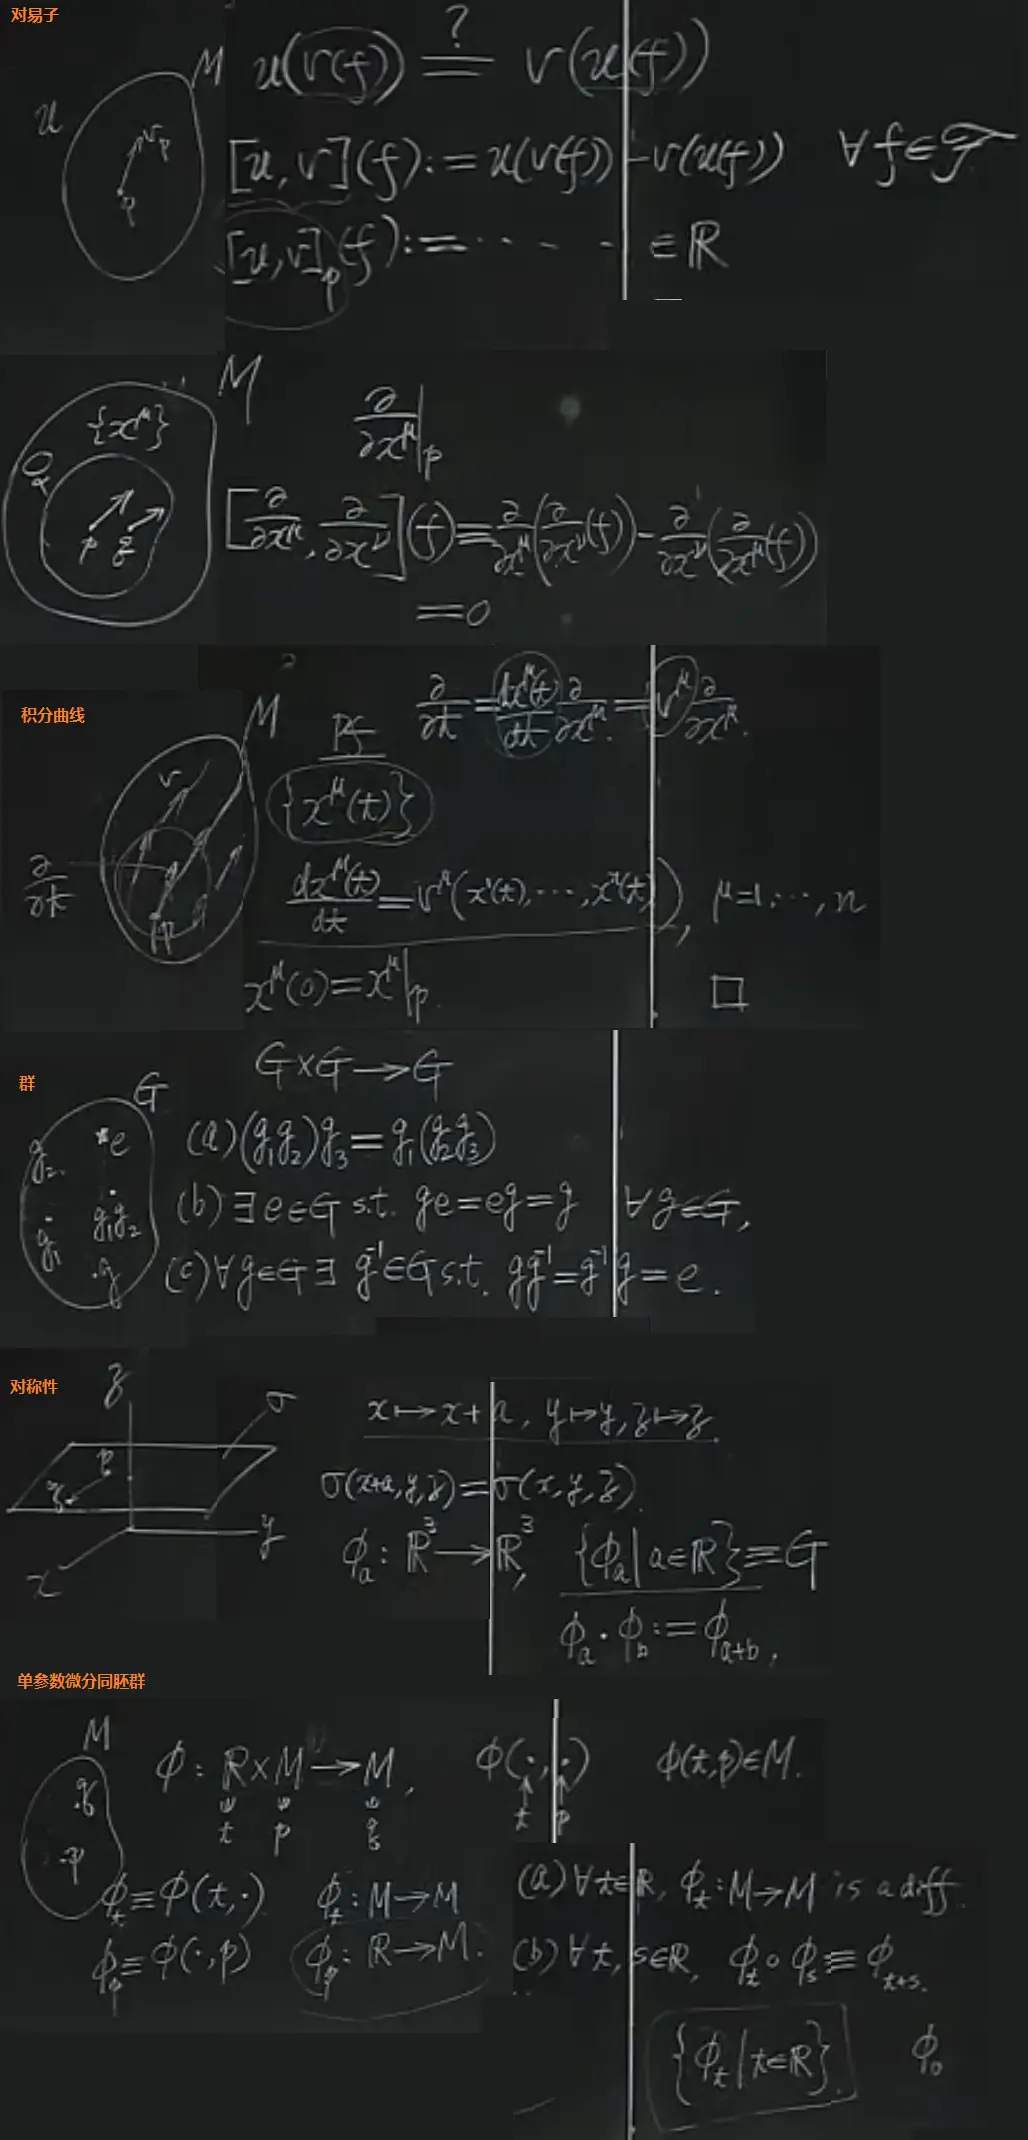 对易子
M
u
v_p
p
u(v(f)) =? v(u(f))
[u,v](f) := u(v(f)) - v(u(f)) ∀f∈ℱ
[u,v]_p(f) := · · · · ∈ℝ
M
{x^μ}
p q
∂/∂x^μ|_p
[∂/∂x^μ, ∂/∂x^ν](f) = ∂/∂x^μ(∂/∂x^ν(f)) - ∂/∂x^ν(∂/∂x^μ(f))
=0
积分曲线
M
v
∂/∂t
p
∂/∂t = dx^μ(t)/dt ∂/∂x^μ = v^μ ∂/∂x^μ.
Pf
{x^μ(t)}
dx^μ(t)/dt = v^μ(x^1(t),···,x^n(t)), μ=1,···,n
x^μ(0)=x^μ|_p.
□
群
G
e
g_2
g_1
g_1g_2
g
G×G→G
(a) (g_1g_2)g_3=g_1(g_2g_3)
(b) ∃e∈G s.t. ge=eg=g ∀g∈G,
(c) ∀g∈G ∃ g^{-1}∈G s.t. gg^{-1}=g^{-1}g=e.
对称性
z
σ
p
y
x
x↦x+a, y↦y, z↦z.
σ(x+a,y,z)=σ(x,y,z).
ϕ_a: ℝ^3→ℝ^3, {ϕ_a|a∈ℝ}≡G
ϕ_a·ϕ_b:=ϕ_{a+b},
单参数微分同胚群
M
q
p
ϕ: ℝ×M→M, ϕ(·,·) ϕ(t,p)∈M.
t p q t p
ϕ_t≡ϕ(t,·) ϕ_t: M→M
ϕ_p≡ϕ(·,p) ϕ_p: ℝ→M.
(a) ∀t∈ℝ, ϕ_t: M→M is a diff.
(b) ∀t,s∈ℝ, ϕ_t∘ϕ_s≡ϕ_{t+s}.
{ϕ_t|t∈ℝ}. ϕ_0